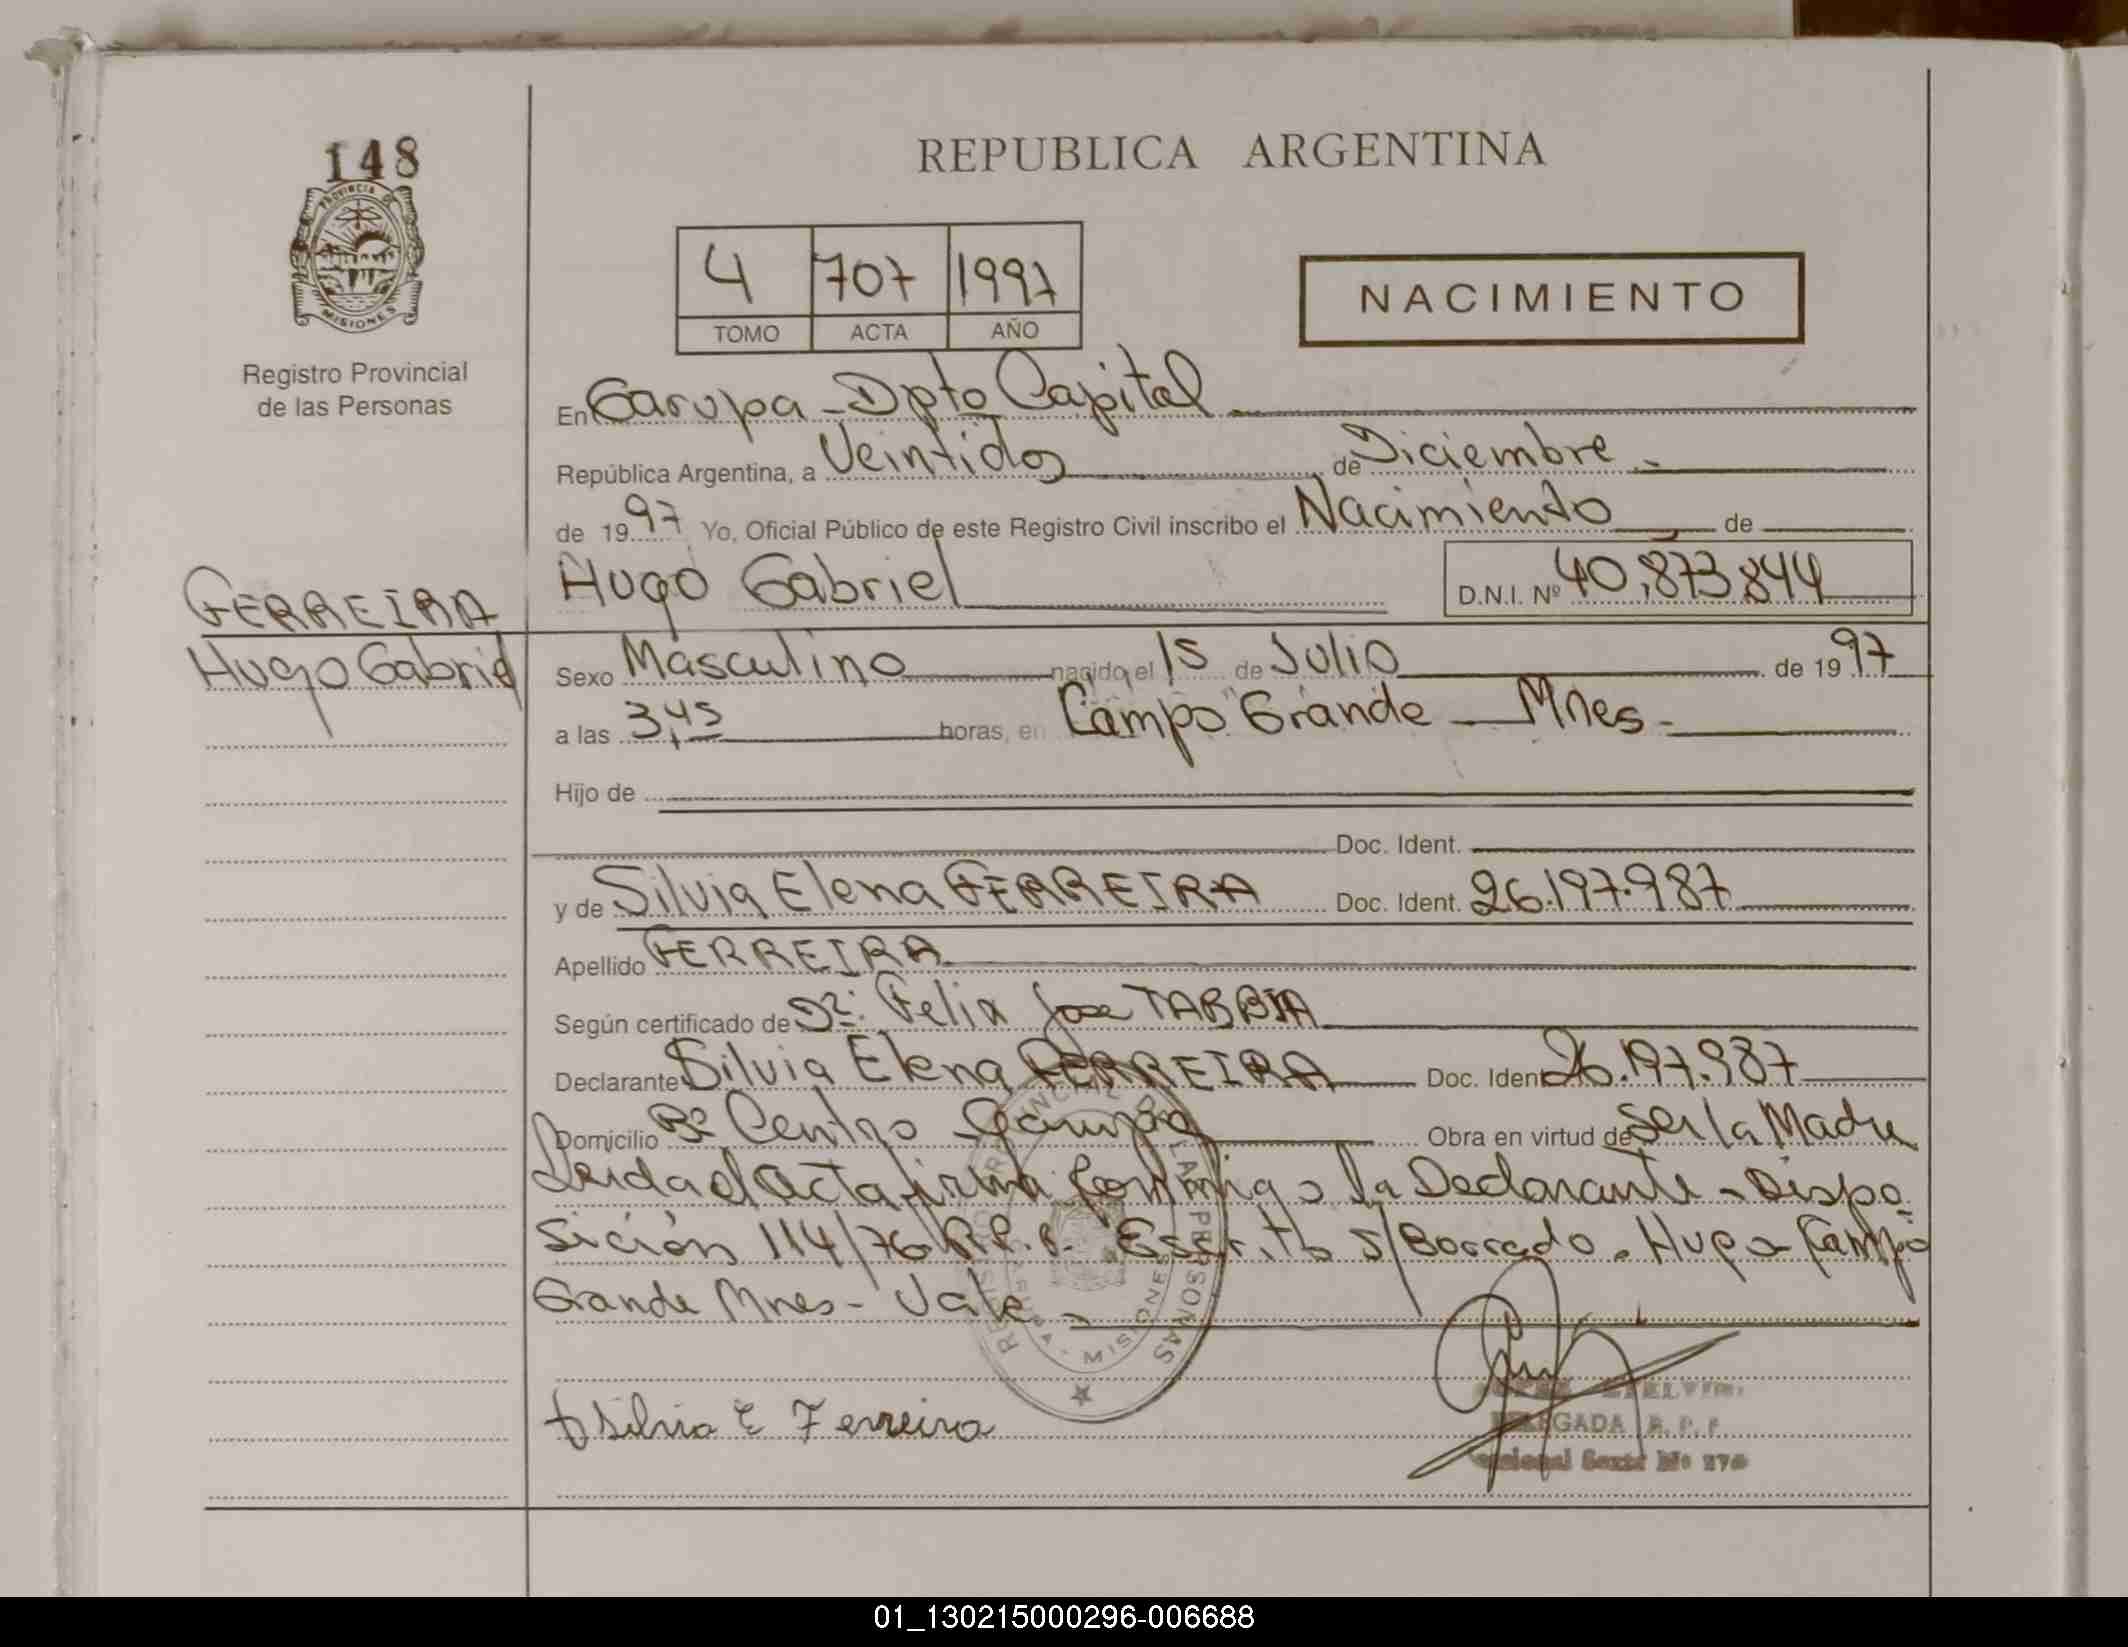 148
PROVINCIA DE
MISIONES
Registro Provincial
de las Personas
REPUBLICA ARGENTINA
4 707 1997
TOMO ACTA AÑO
NACIMIENTO
En Garupa - Dpto Capital
República Argentina, a Veintidos de Diciembre.
de 1997 Yo, Oficial Público de este Registro Civil inscribo el Nacimiento de
Hugo Gabriel D.N.I. Nº 40.873.844
FERREIRA
Hugo Gabriel
Sexo Masculino nacido el 15 de Julio de 1997
a las 3,45 horas, en Campo Grande - Mnes-
Hijo de
Doc. Ident.
y de Silvia Elena FERREIRA Doc. Ident. 26.197.987
Apellido FERREIRA
Según certificado de Dr. Felix Jose TABBIA
Declarante Silvia Elena FERREIRA Doc. Ident 26.197.987
Domicilio Bº Centro Garupa Obra en virtud de Ser la Madre
Leida el Acta firma Conmigo la Declarante - Dispo
sición 114/76 R.P.P. Escrito s/Borrado. Hugo - Campo
Grande Mnes - Vale -
Silvia E Ferreira
DELEGADA R. P. P.
REGISTRO PROVINCIAL DE LAS PERSONAS
MISIONES
01_130215000296-006688